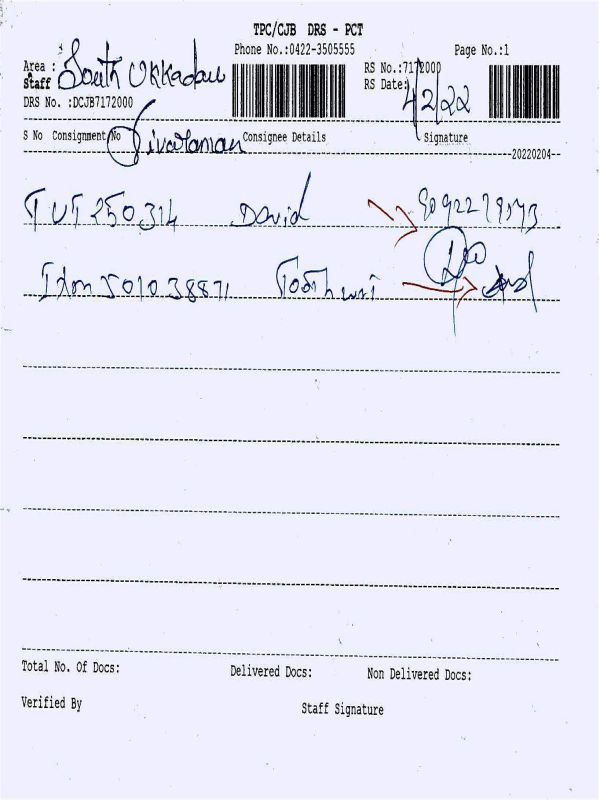 TPC/CJB DRS - PCT
Phone No.:0422-3505555 Page No.:1
Area : South Ukkadam RS No.:7172000
Staff RS Date: 4/2/22
DRS No. :DCJB7172000
S No Consignment No Consignee Details Signature
Sivaraman
20220204
TUT 250314 David
501038871
Total No. Of Docs: Delivered Docs: Non Delivered Docs:
Verified By Staff Signature